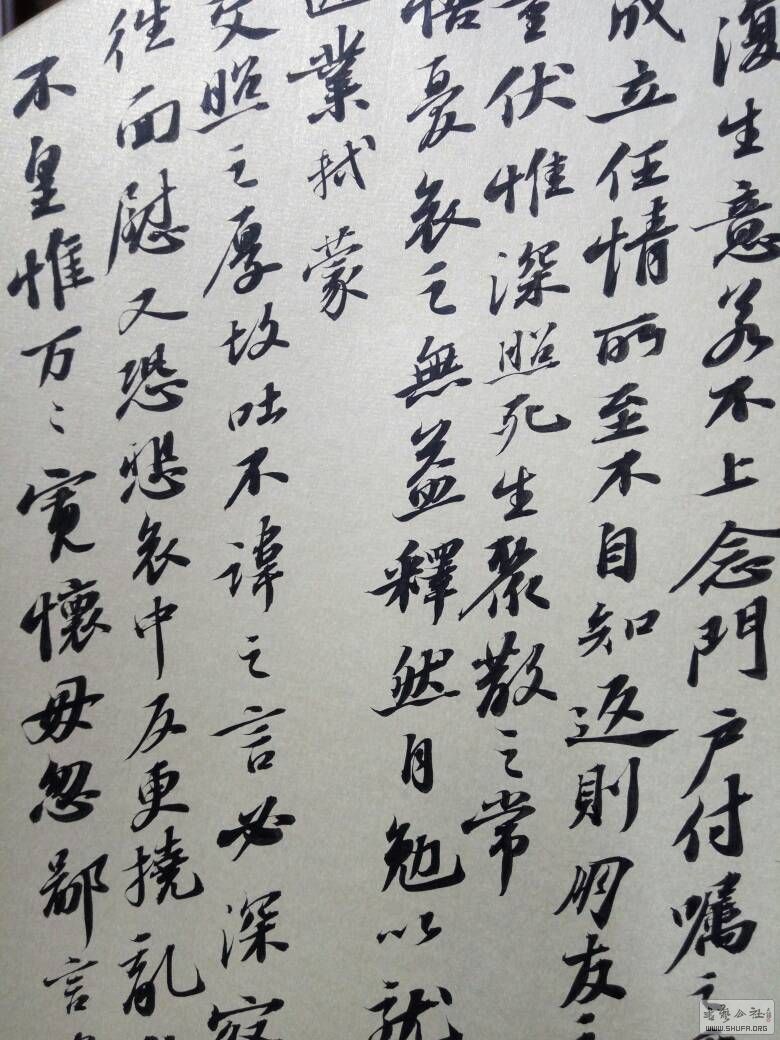 復生意若不上念門户付囑之
成立任情所至不自知返則朋友之
重伏惟深照死生聚散之常
悟憂哀之無益釋然自勉以就
業軾蒙
交照之厚故吐不諱之言必深察
往面慰又恐悲哀中反更撓亂
不皇惟万々寬懷毋忽鄙言
WWW.SHUFA.ORG